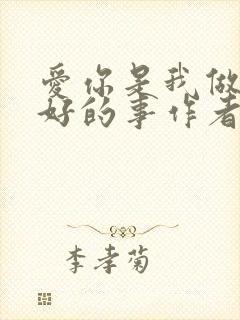 爱你是我做
好的事作者
李孝菊